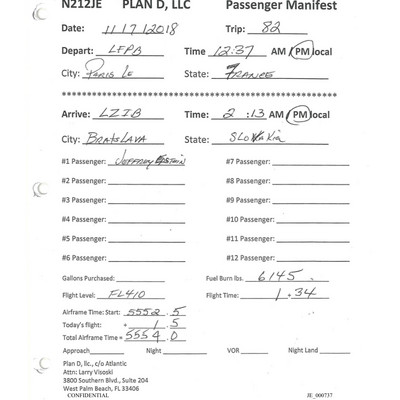 N212JE PLAN D, LLC Passenger Manifest
Date: 11/17/2018 Trip: 82
Depart: LFPB Time 12:37 AM/PM local
City: Paris Le State: FRANCE
Arrive: LZIB Time: 2:13 AM/PM local
City: BRATISLAVA State: SLOVAKIA
#1 Passenger: JEFFREY EPSTEIN #7 Passenger:
#2 Passenger: #8 Passenger:
#3 Passenger: #9 Passenger:
#4 Passenger: #10 Passenger:
#5 Passenger: #11 Passenger:
#6 Passenger: #12 Passenger:
Gallons Purchased: Fuel Burn lbs. 6145.
Flight Level: FL410 Flight Time: 1.34
Airframe Time: Start: 5552.5
Today's flight: + 1.5
Total Airframe Time = 5554.0
Approach Night VOR Night Land
Plan D, llc., c/o Atlantic
Attn: Larry Visoski
3800 Southern Blvd., Suite 204
West Palm Beach, FL 33406
CONFIDENTIAL JE_000737